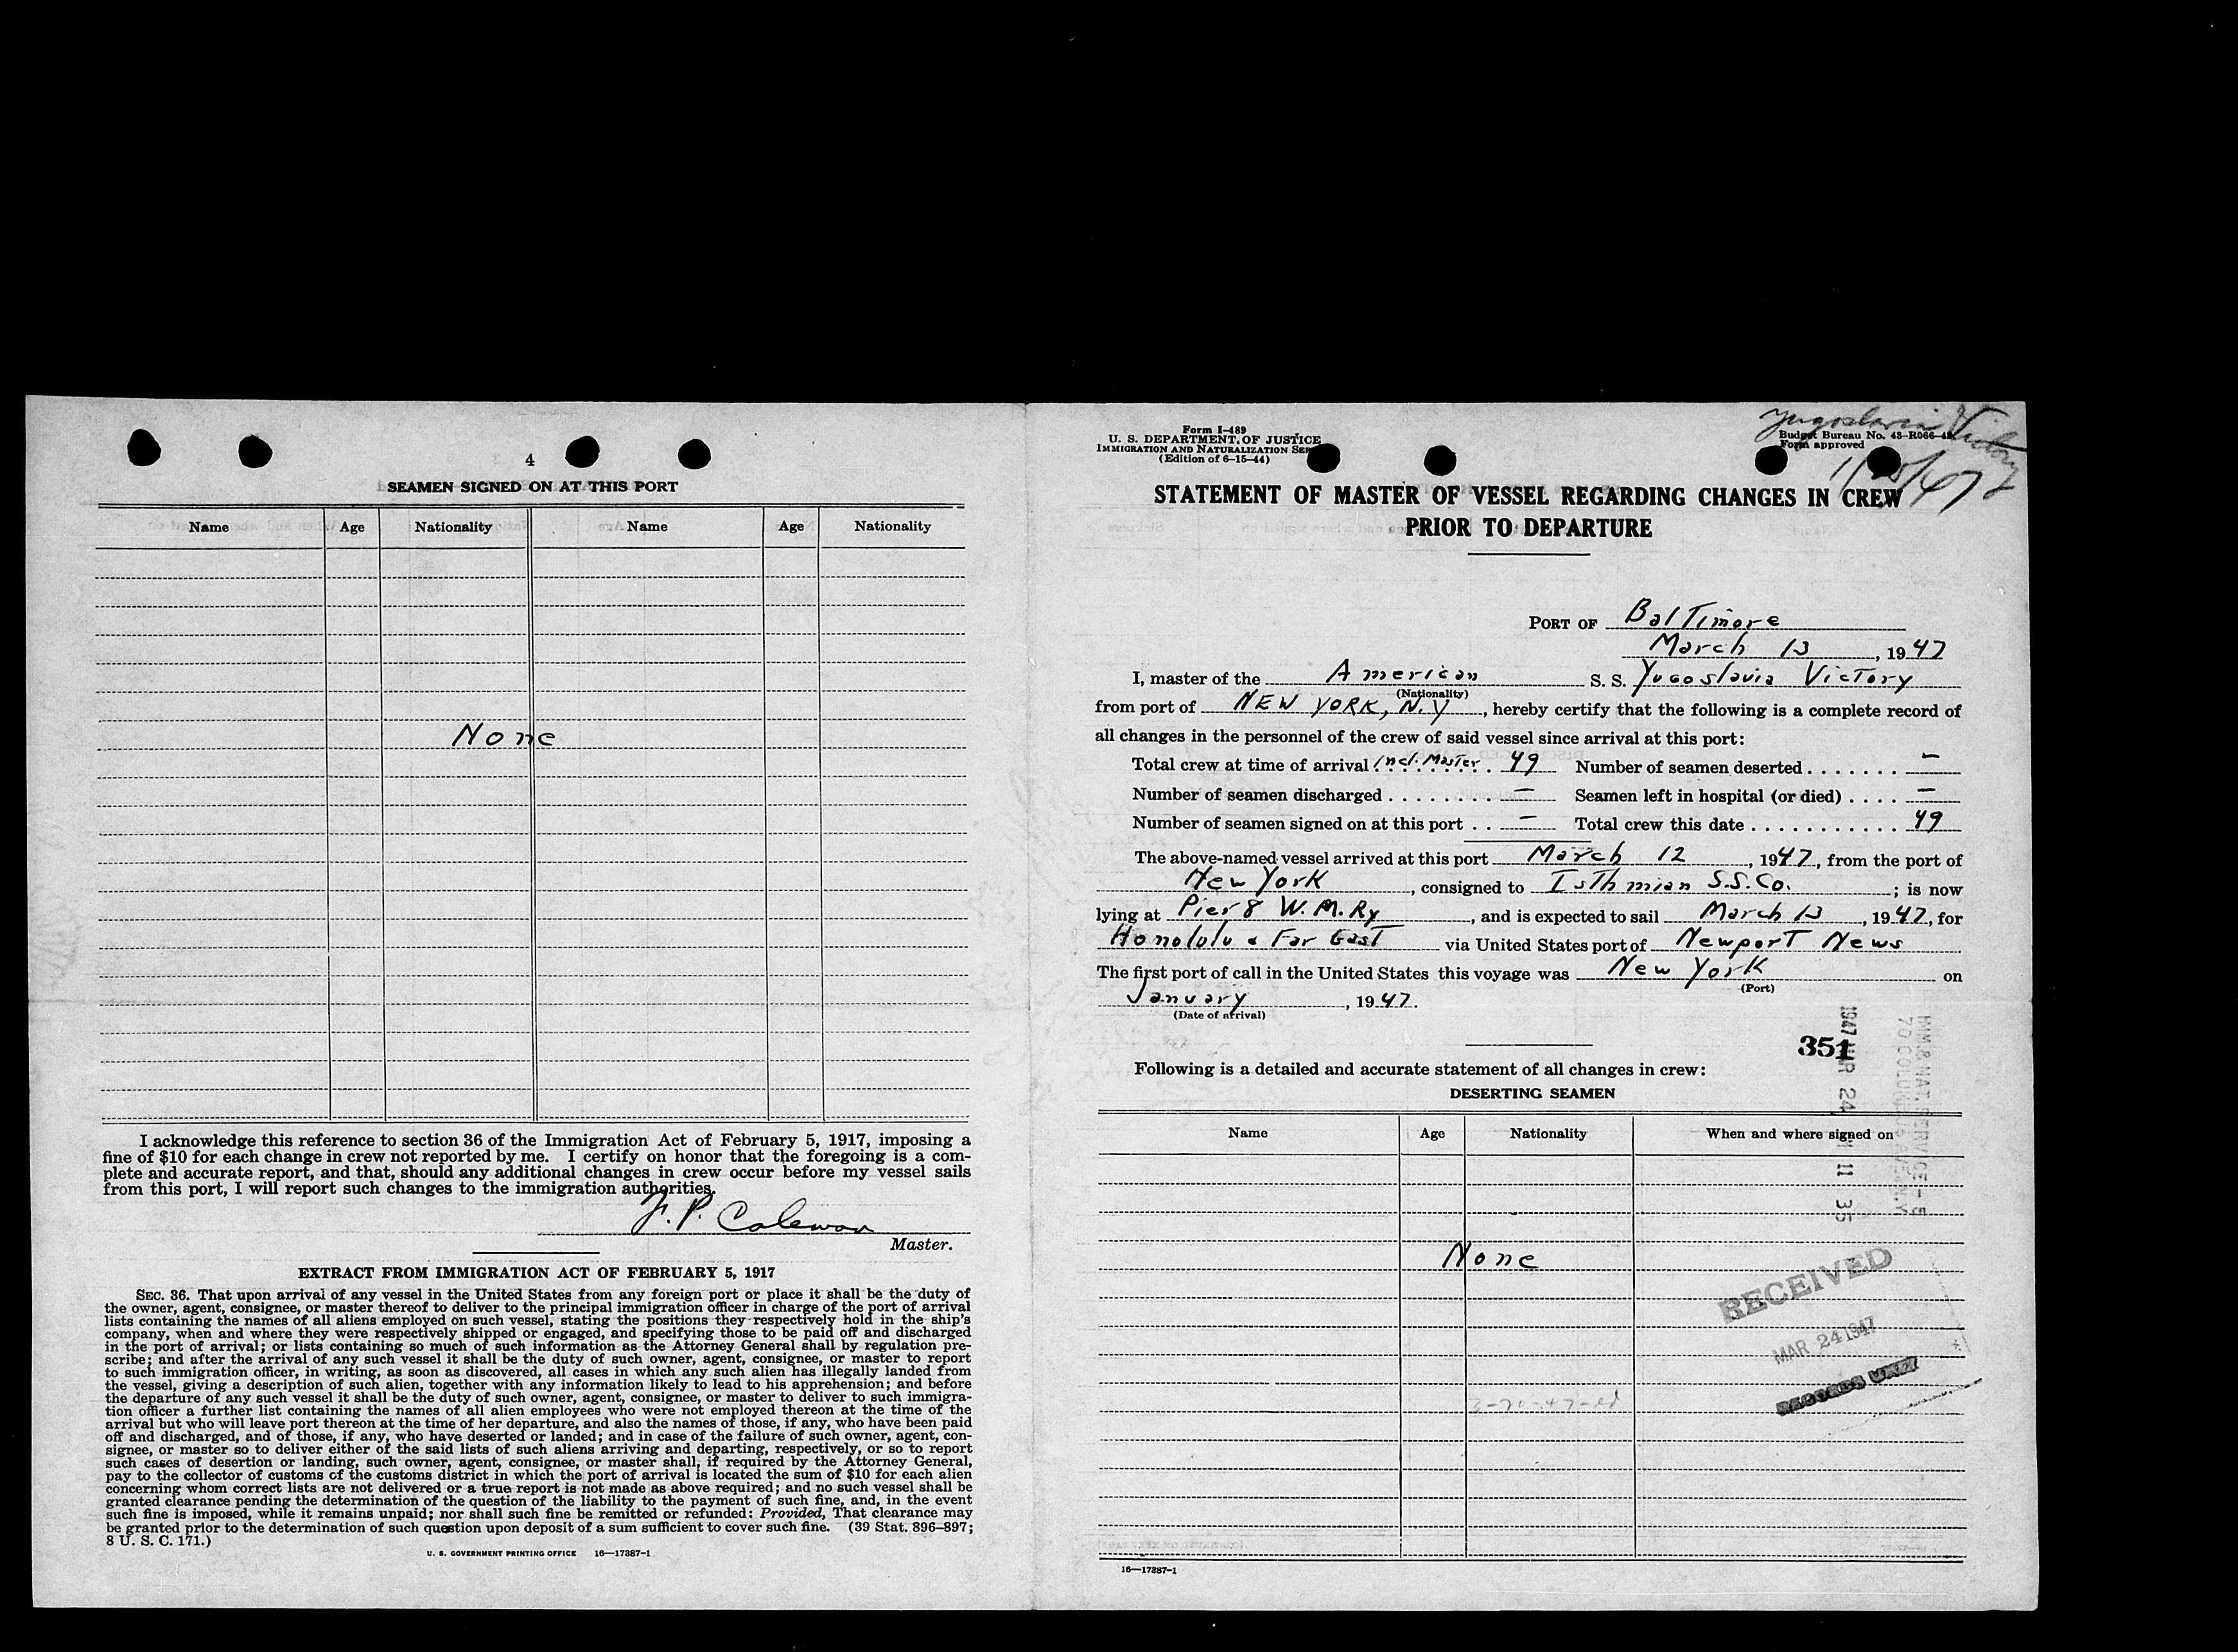 4
SEAMEN SIGNED ON AT THIS PORT
Name Age Nationality Name Age Nationality
None
I acknowledge this reference to section 36 of the Immigration Act of February 5, 1917, imposing a
fine of $10 for each change in crew not reported by me. I certify on honor that the foregoing is a com-
plete and accurate report, and that, should any additional changes in crew occur before my vessel sails
from this port, I will report such changes to the immigration authorities.
F. P. Coleman
Master.
EXTRACT FROM IMMIGRATION ACT OF FEBRUARY 5, 1917
SEC. 36. That upon arrival of any vessel in the United States from any foreign port or place it shall be the duty of
the owner, agent, consignee, or master thereof to deliver to the principal immigration officer in charge of the port of arrival
lists containing the names of all aliens employed on such vessel, stating the positions they respectively hold in the ship's
company, when and where they were respectively shipped or engaged, and specifying those to be paid off and discharged
in the port of arrival; or lists containing so much of such information as the Attorney General shall by regulation pre-
scribe; and after the arrival of any such vessel it shall be the duty of such owner, agent, consignee, or master to report
to such immigration officer, in writing, as soon as discovered, all cases in which any such alien has illegally landed from
the vessel, giving a description of such alien, together with any information likely to lead to his apprehension; and before
the departure of any such vessel it shall be the duty of such owner, agent, consignee, or master to deliver to such immigra-
tion officer a further list containing the names of all alien employees who were not employed thereon at the time of the
arrival but who will leave port thereon at the time of her departure, and also the names of those, if any, who have been paid
off and discharged, and of those, if any, who have deserted or landed; and in case of the failure of such owner, agent, con-
signee, or master so to deliver either of the said lists of such aliens arriving and departing, respectively, or so to report
such cases of desertion or landing, such owner, agent, consignee, or master shall, if required by the Attorney General,
pay to the collector of customs of the customs district in which the port of arrival is located the sum of $10 for each alien
concerning whom correct lists are not delivered or a true report is not made as above required; and no such vessel shall be
granted clearance pending the determination of the question of the liability to the payment of such fine, and, in the event
such fine is imposed, while it remains unpaid; nor shall such fine be remitted or refunded: Provided, That clearance may
be granted prior to the determination of such question upon deposit of a sum sufficient to cover such fine. (39 Stat. 896–897;
8 U. S. C. 171.)
U. S. GOVERNMENT PRINTING OFFICE 16—17387-1
Yugoslavia Victory
Form I-489
U. S. DEPARTMENT OF JUSTICE
IMMIGRATION AND NATURALIZATION SER
(Edition of 6-15-44)
Budget Bureau No. 43-R066-42
Form approved
STATEMENT OF MASTER OF VESSEL REGARDING CHANGES IN CREW
PRIOR TO DEPARTURE
PORT OF Baltimore
March 13, 1947
I, master of the American S. S. Yugoslavia Victory
(Nationality)
from port of NEW YORK, N.Y, hereby certify that the following is a complete record of
all changes in the personnel of the crew of said vessel since arrival at this port:
Total crew at time of arrival Incl. Master 49 Number of seamen deserted . . . . . . . —
Number of seamen discharged . . . . . . . . — Seamen left in hospital (or died) . . . . —
Number of seamen signed on at this port . . — Total crew this date . . . . . . . . . . . 49
The above-named vessel arrived at this port March 12, 1947, from the port of
New York, consigned to Isthmian S.S. Co.; is now
lying at Pier 8 W. M. Ry, and is expected to sail March 13, 1947, for
Honolulu & Far East via United States port of Newport News
The first port of call in the United States this voyage was New York on
(Port)
January, 1947.
(Date of arrival)
351
Following is a detailed and accurate statement of all changes in crew:
DESERTING SEAMEN
Name Age Nationality When and where signed on
1947 MAR 24 11 35
None
RECEIVED
MAR 24 1947
RECORDS UNIT
16—17387-1